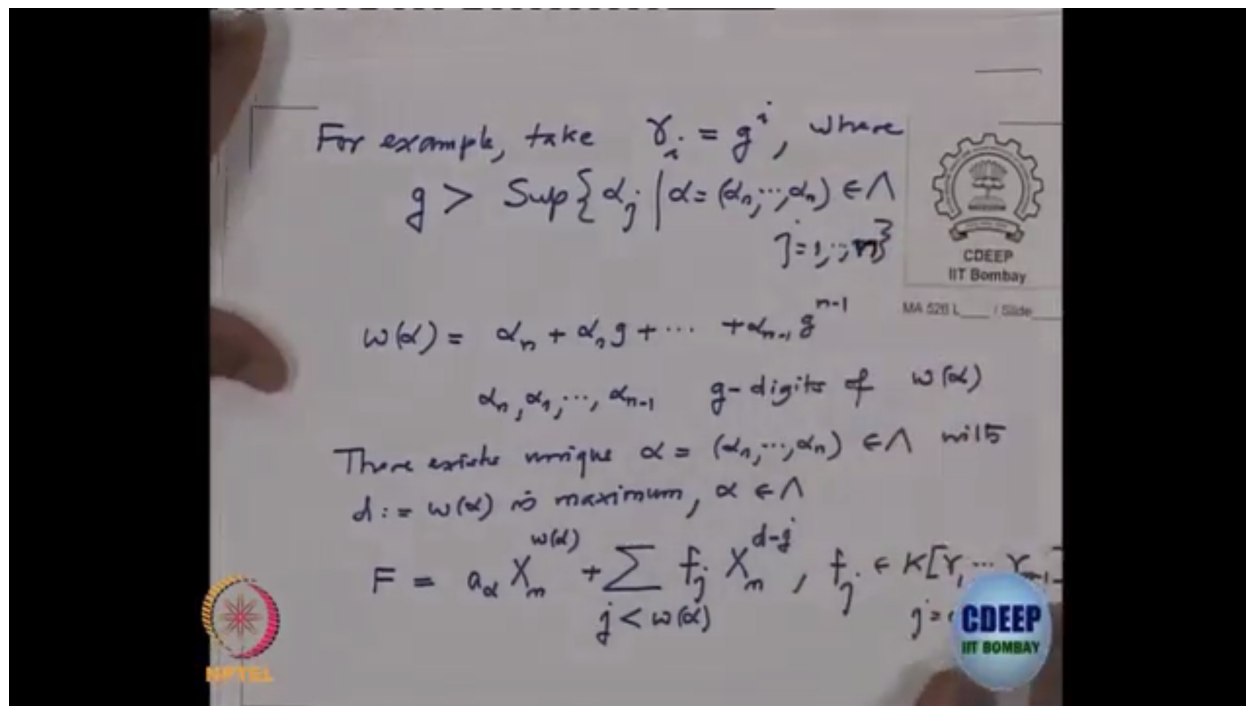 For example, take γ_i = g^i, where
g > Sup{α_j | α = (α_1, ..., α_n) ∈ Λ
j = 1, .., n}
CDEEP
IIT Bombay
MA 526 L___ / Slide___
w(α) = α_n + α_1 g + ⋯ + α_{n-1} g^{n-1}
α_n, α_1, ⋯, α_{n-1} g-digits of w(α)
There exists unique α = (α_1, ⋯, α_n) ∈ Λ with
d := w(α) is maximum, α ∈ Λ
F = a_α X_n^{w(α)} + ∑_{j < w(α)} f_j X_n^{d-j}, f_j ∈ K[Y_1 ⋯ Y_{n-1}]
j =
NPTEL
CDEEP
IIT BOMBAY